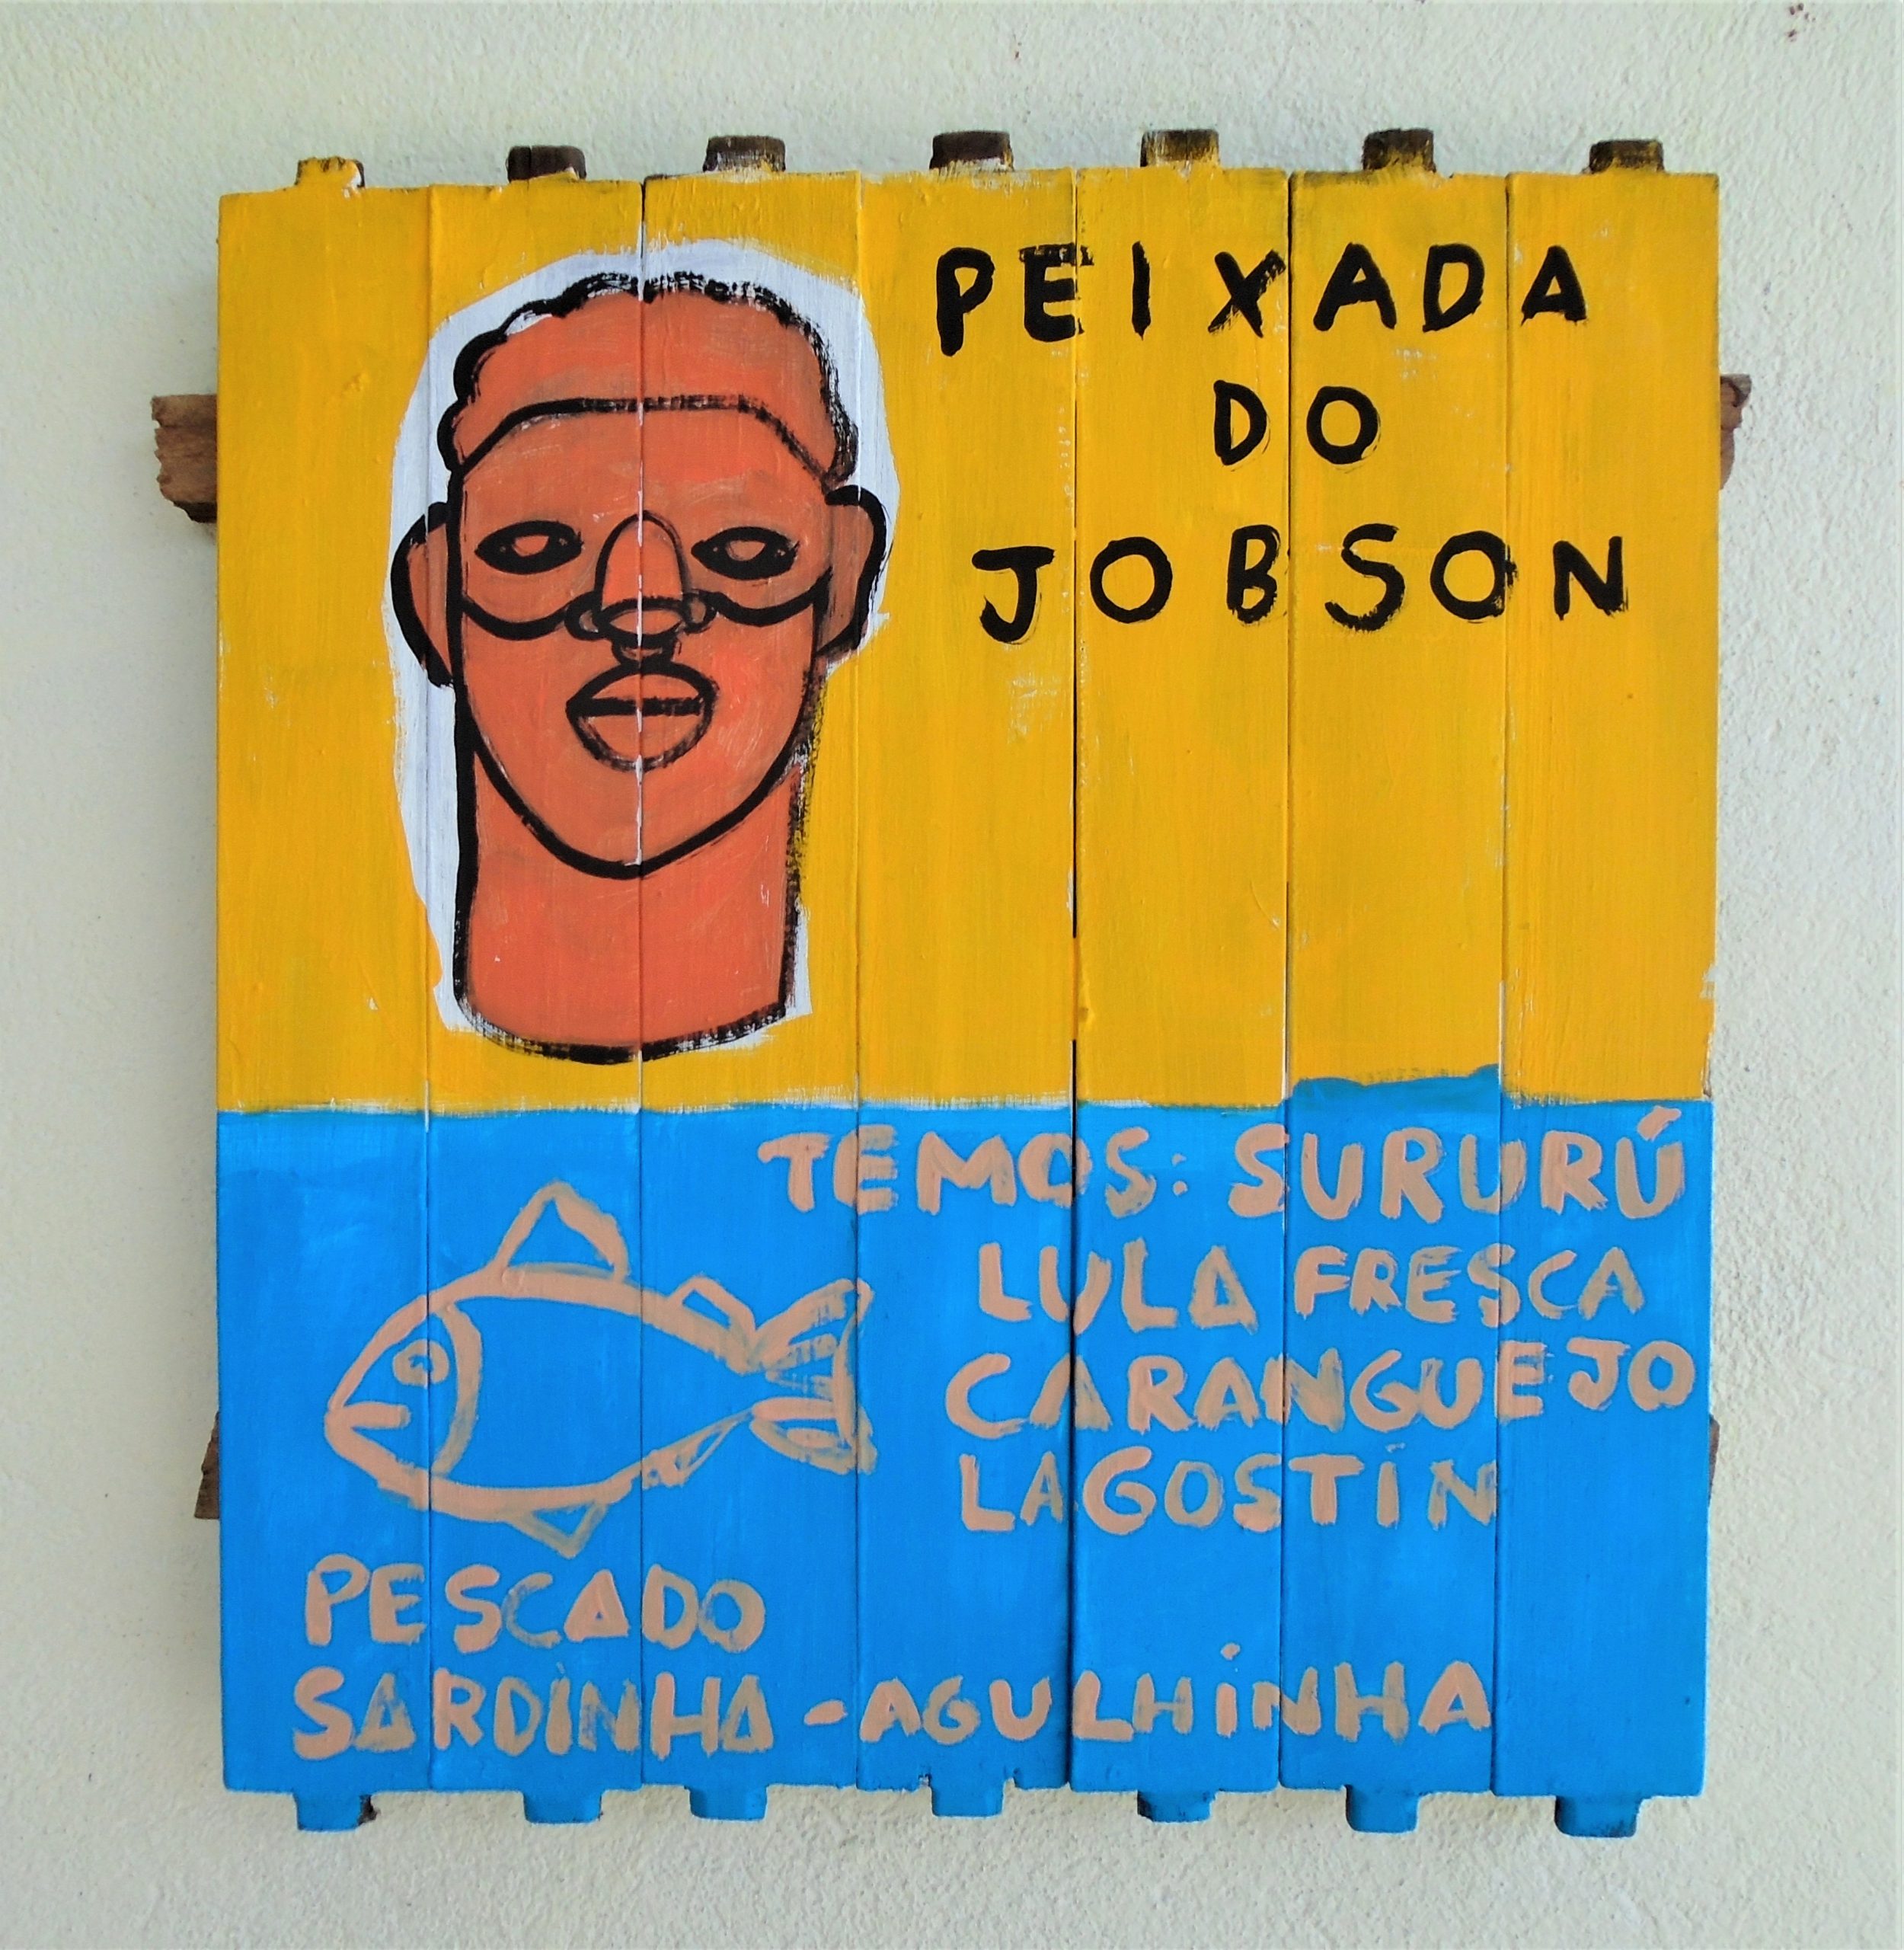 PEIXADA
DO
JOBSON
TEMOS: SURURÚ
LULA FRESCA
CARANGUEJO
LAGOSTIN
PESCADO
SARDINHA - AGULHINHA